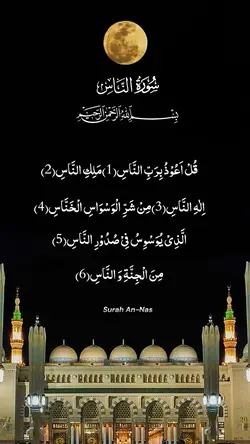 سُورَةُ النَّاسِ
بِسْمِ اللهِ الرَّحْمٰنِ الرَّحِيْمِ
قُلْ اَعُوْذُ بِرَبِّ النَّاسِ(1)مَلِكِ النَّاسِ(2)
اِلٰهِ النَّاسِ(3)مِنْ شَرِّ الْوَسْوَاسِ الْخَنَّاسِ(4)
الَّذِیْ یُوَسْوِسُ فِیْ صُدُوْرِ النَّاسِ(5)
مِنَ الْجِنَّةِ وَ النَّاسِ(6)
Surah An-Nas